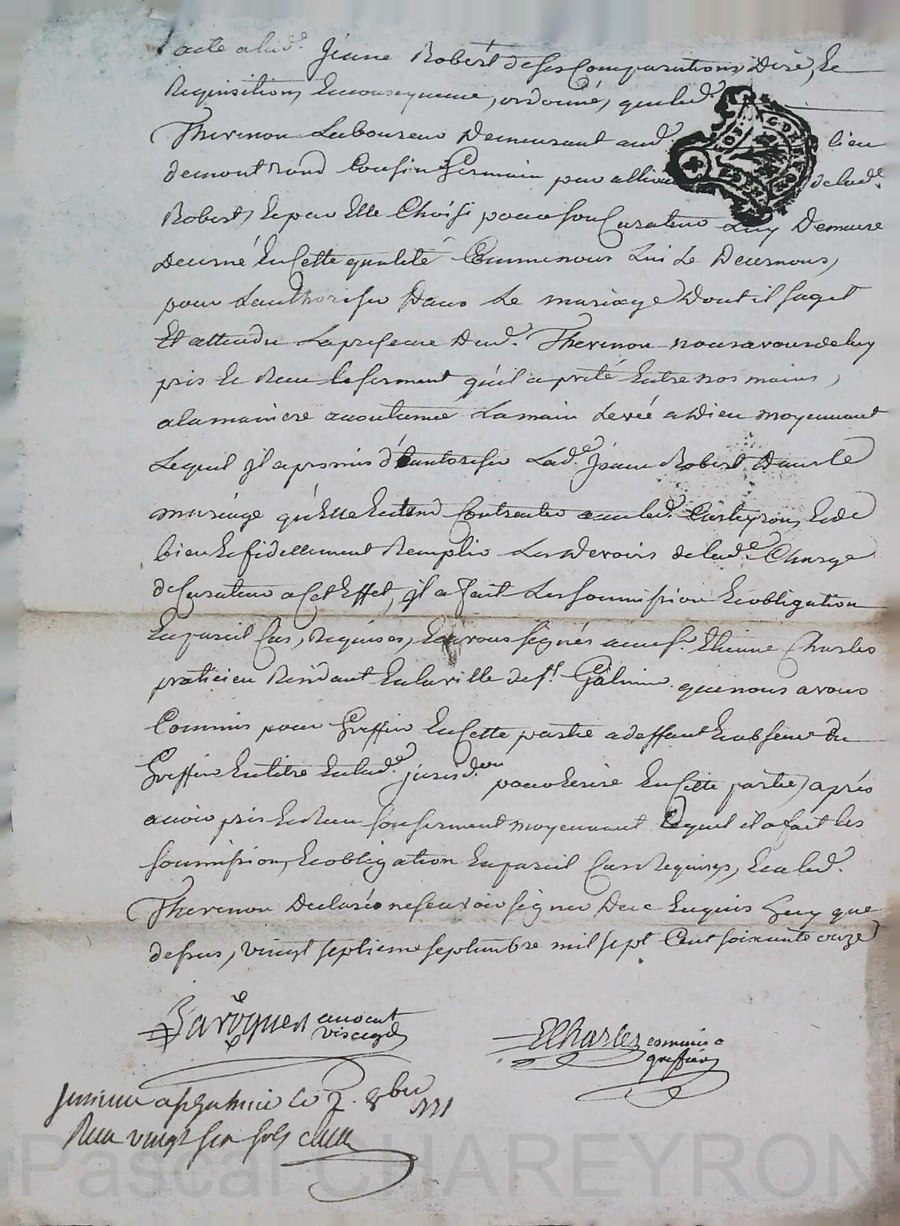 acte a lad.e Jeanne Robert de ses Comparutions, Dire, Et
Requisitions, En consequence, ordonné, que led.
Thevenon Laboureur Demeurant aud. lieu
de montrond Cousin Germain par alliance de lad.e
Robert, Et par Elle Choisi pour son Curateur Luy Demeure
Decerné En Cette qualité Comme nous Lui Le Decernons,
pour Lauthoriser Dans Le mariage Dont il sagit
Et attendu La presence Dud. Thevenon nous avons de luy
pris Et Receu le serment qu'il a preté Entre nos mains,
a la maniere accoutumée La main Levée a Dieu moyennant
Lequel il a promis d'autoriser Lad.e Jeanne Robert Dans le
mariage qu'elle Entend Contracter avec led. Et de
bien Et fidellement Remplir Les Devoirs de lad.e Charge
de Curateur a Cet Effet, il a fait Les soumission Et obligation
En pareil Cas, Requises, Et avons signés avec s.r Etienne Charles
praticien Residant En la ville de s.t Galmier que nous avons
Commis pour Greffier En Cette partie a deffaut Et absence du
Greffier En titre En lad.e jurisd.on pour Ecrire En Cette partie, après
avoir pris Et Receu son serment moyennant Lequel il a fait les
soumissions, Et obligation En pareil Cas Requises, Et a led.
Thevenon Declaré ne scavoir signer De ce Enquis Jour que
dessus, vingt septieme septembre mil sept Cent soixante onze
avocat
EtCharles commis
greffier
a st galmier le 7. 8bre 1771
Receu vingt six sols
Pascal CHAREYRON